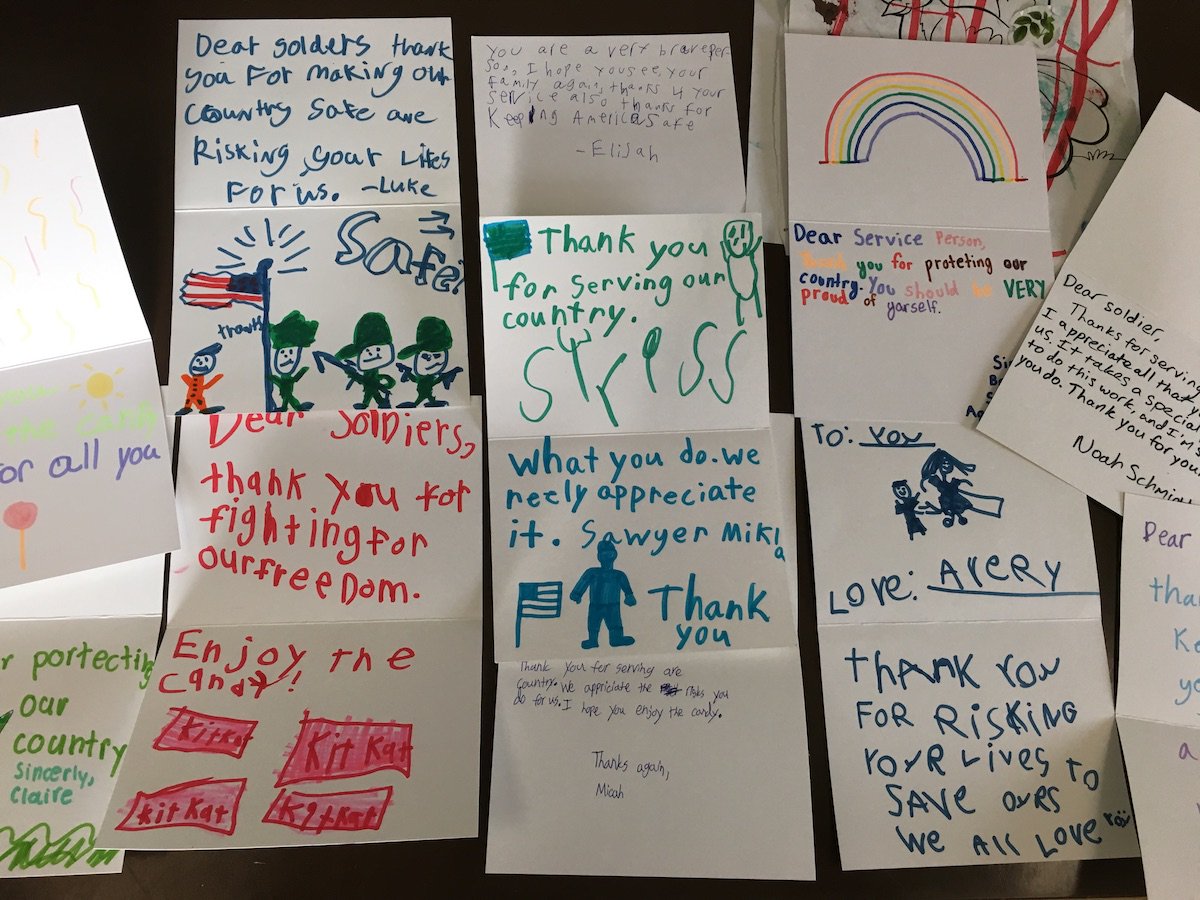 Dear solders thank
you For making our
Country Safe are
Risking your Lifes
For us. -Luke
Safe!
You are a very braveper
Son, I hope yousee, your
family again, thanks 4 your
Service also thanks for
Keeping America Safe
-Elijah
Thank you
for serving our
country.
Dear Service Person,
you for proteting our
country. You should be VERY
proud of yarself.
Dear soldier,
Thanks for serving
I appreciate all that
us. It takes a special
to do this work, and I'm s
you do. Thank you for your
Noah Schmi
for all you
Dear Soldiers,
thank you for
fighting for
our freeDom.
Enjoy the
candy!
KitKat
Kit Kat
kit Kat
Kitkat
what you do. we
reely appreciate
it. Sawyer Mikla
Thank
you
Thank you for serving are
country. We appriciate the risks you
do for us. I hope you enjoy the candy.
Thanks again,
Micah
To: you
Love: Avery
THANK YOU
FOR RISKING
YOUR LIVES TO
SAVE OURS
WE All LOVE you
r portecting
our
country
Sincerely,
Claire
Dear
than
Ke
yo
a